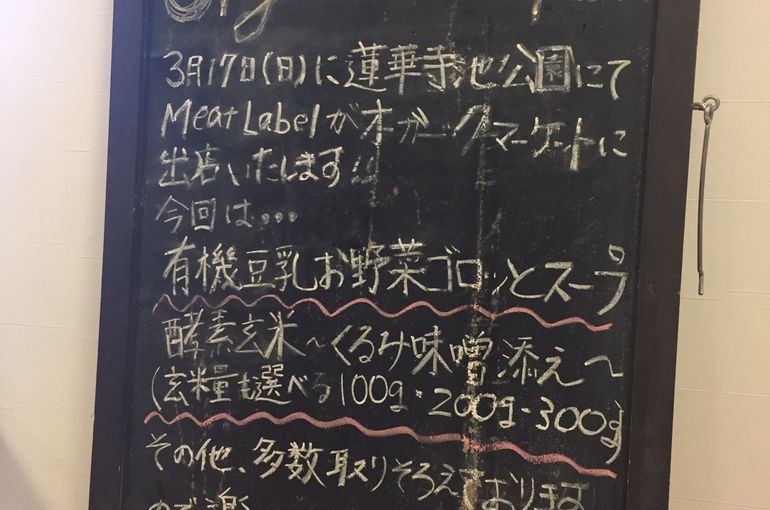 Org
3月17日(日)に蓮華寺池公園にて
Meat Labelがオガニックマーケットに
出店いたします!!
今回は・・・
有機豆乳お野菜ゴロッとスープ
酵素玄米〜くるみ味噌添え〜
(玄米量も選べる100g・200g・300g)
その他、多数取りそろえております
ので楽